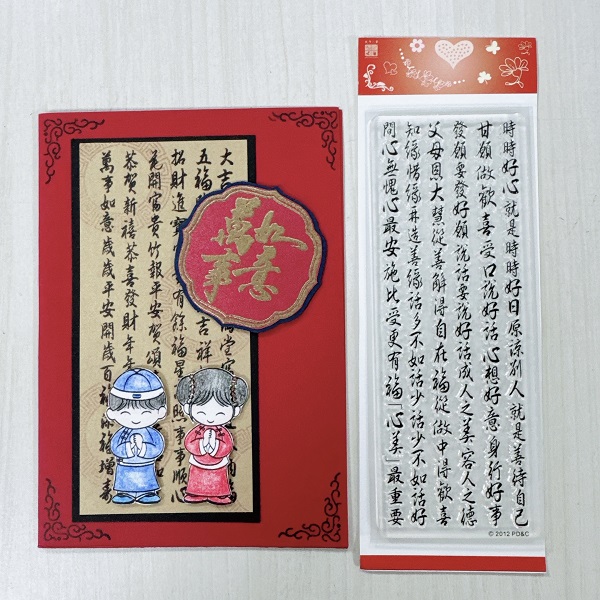 大吉
五福
招財進寶 有餘福星 照事事順心
花開富貴竹報平安賀頌
恭賀新禧恭喜發財年年
萬事如意歲歲平安開歲百福 福增壽
萬事如意
時時好心就是時時好日原諒別人就是善待自己
甘願做歡喜受口說好話心想好意身行好事
發願要發好願說話要說好話成人之美容人之德
父母恩大慧從善解得自在福從做中得歡喜
知緣惜緣再造善緣話多不如話少話少不如話好
問心無愧心最安施比受更有福「心美」最重要
© 2012 PD&C